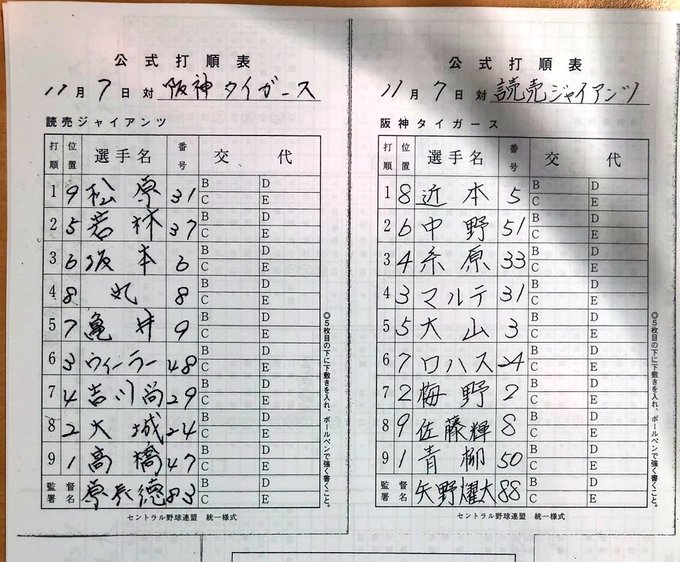 公式打順表
11月7日 対 阪神タイガース
読売ジャイアンツ
打順 位置 選手名 番号 交代
1 9 松原 31 B D C E
2 5 若林 37 B D C E
3 6 坂本 6 B D C E
4 8 丸 8 B D C E
5 7 亀井 9 B D C E
6 3 ウィーラー 48 B D C E
7 4 吉川尚 29 B D C E
8 2 大城 24 B D C E
9 1 高橋 47 B D C E
監督署名 原辰徳 83 B D C E
セントラル野球連盟 統一様式
◎5枚目の下に下敷きを入れ、ボールペンで強く書くこと。
公式打順表
11月7日 対 読売ジャイアンツ
阪神タイガース
打順 位置 選手名 番号 交代
1 8 近本 5 B D C E
2 6 中野 51 B D C E
3 4 糸原 33 B D C E
4 3 マルテ 31 B D C E
5 5 大山 3 B D C E
6 7 ロハス 24 B D C E
7 2 梅野 2 B D C E
8 9 佐藤輝 8 B D C E
9 1 青柳 50 B D C E
監督署名 矢野燿大 88 B D C E
セントラル野球連盟 統一様式
◎5枚目の下に下敷きを入れ、ボールペンで強く書くこと。